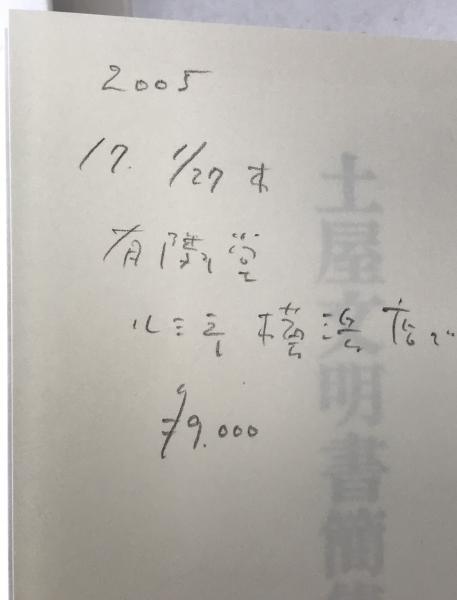 2005
17. 1/27 木
有隣堂
ルミネ 横浜店で
¥9.000
土屋文明書簡集